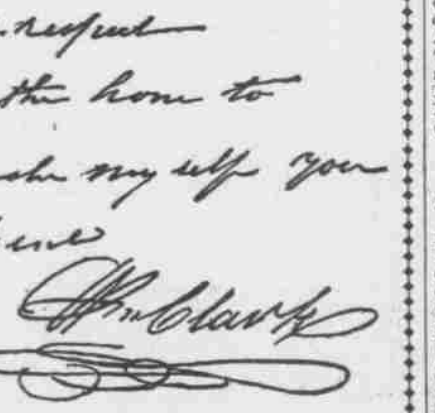 respect
the hone to
my self your
Clark